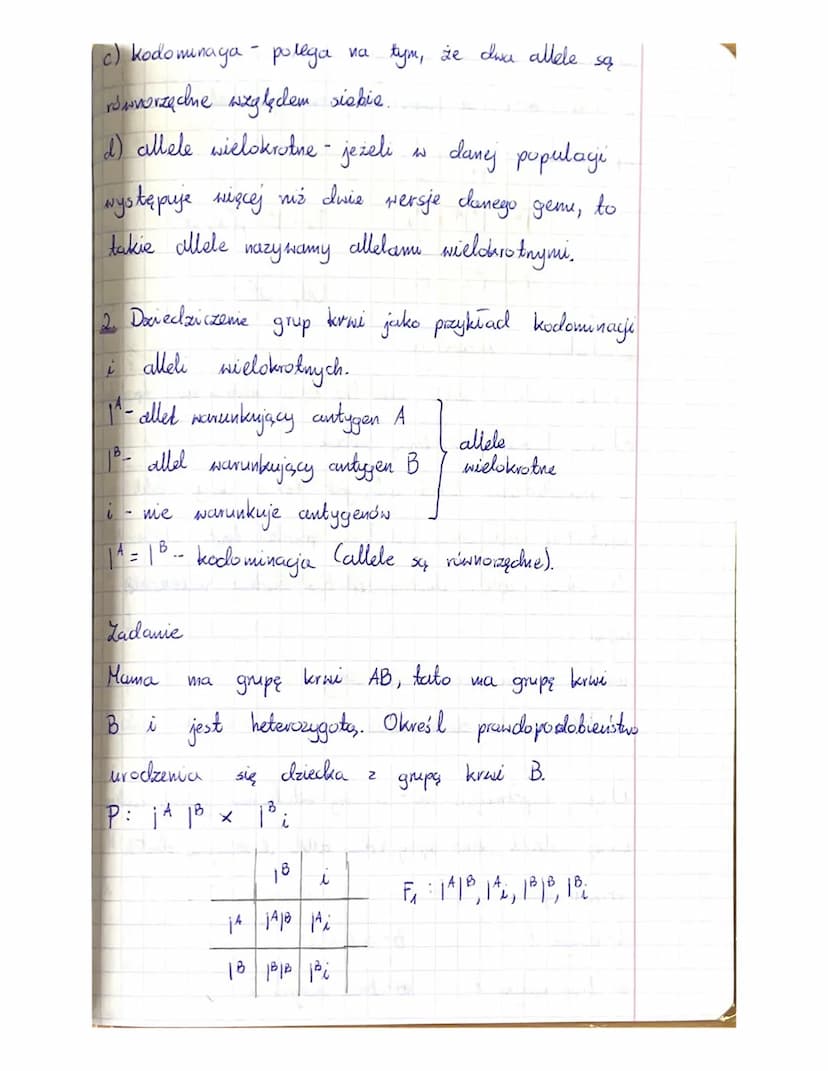 c) kodominacja - polega na tym, że dwa allele są
równorzędne względem siebie.
d) allele wielokrotne - jeżeli w danej populacji
występuje więcej niż dwie wersje danego genu, to
takie allele nazywamy allelami wielokrotnymi.
2. Dziedziczenie grup krwi jako przykład kodominacji
i alleli wielokrotnych.
I^A - allel warunkujący antygen A
I^B - allel warunkujący antygen B
allele
wielokrotne
i - nie warunkuje antygenów
I^A = I^B - kodominacja (allele są równorzędne).
Zadanie
Mama ma grupę krwi AB, tato ma grupę krwi
B i jest heterozygotą. Określ prawdopodobieństwo
urodzenia się dziecka z grupą krwi B.
P: I^A I^B x I^B i
I^B i
F₁: I^A I^B, I^A i, I^B I^B, I^B i
I^A I^A I^B I^A i
I^B I^B I^B I^B i